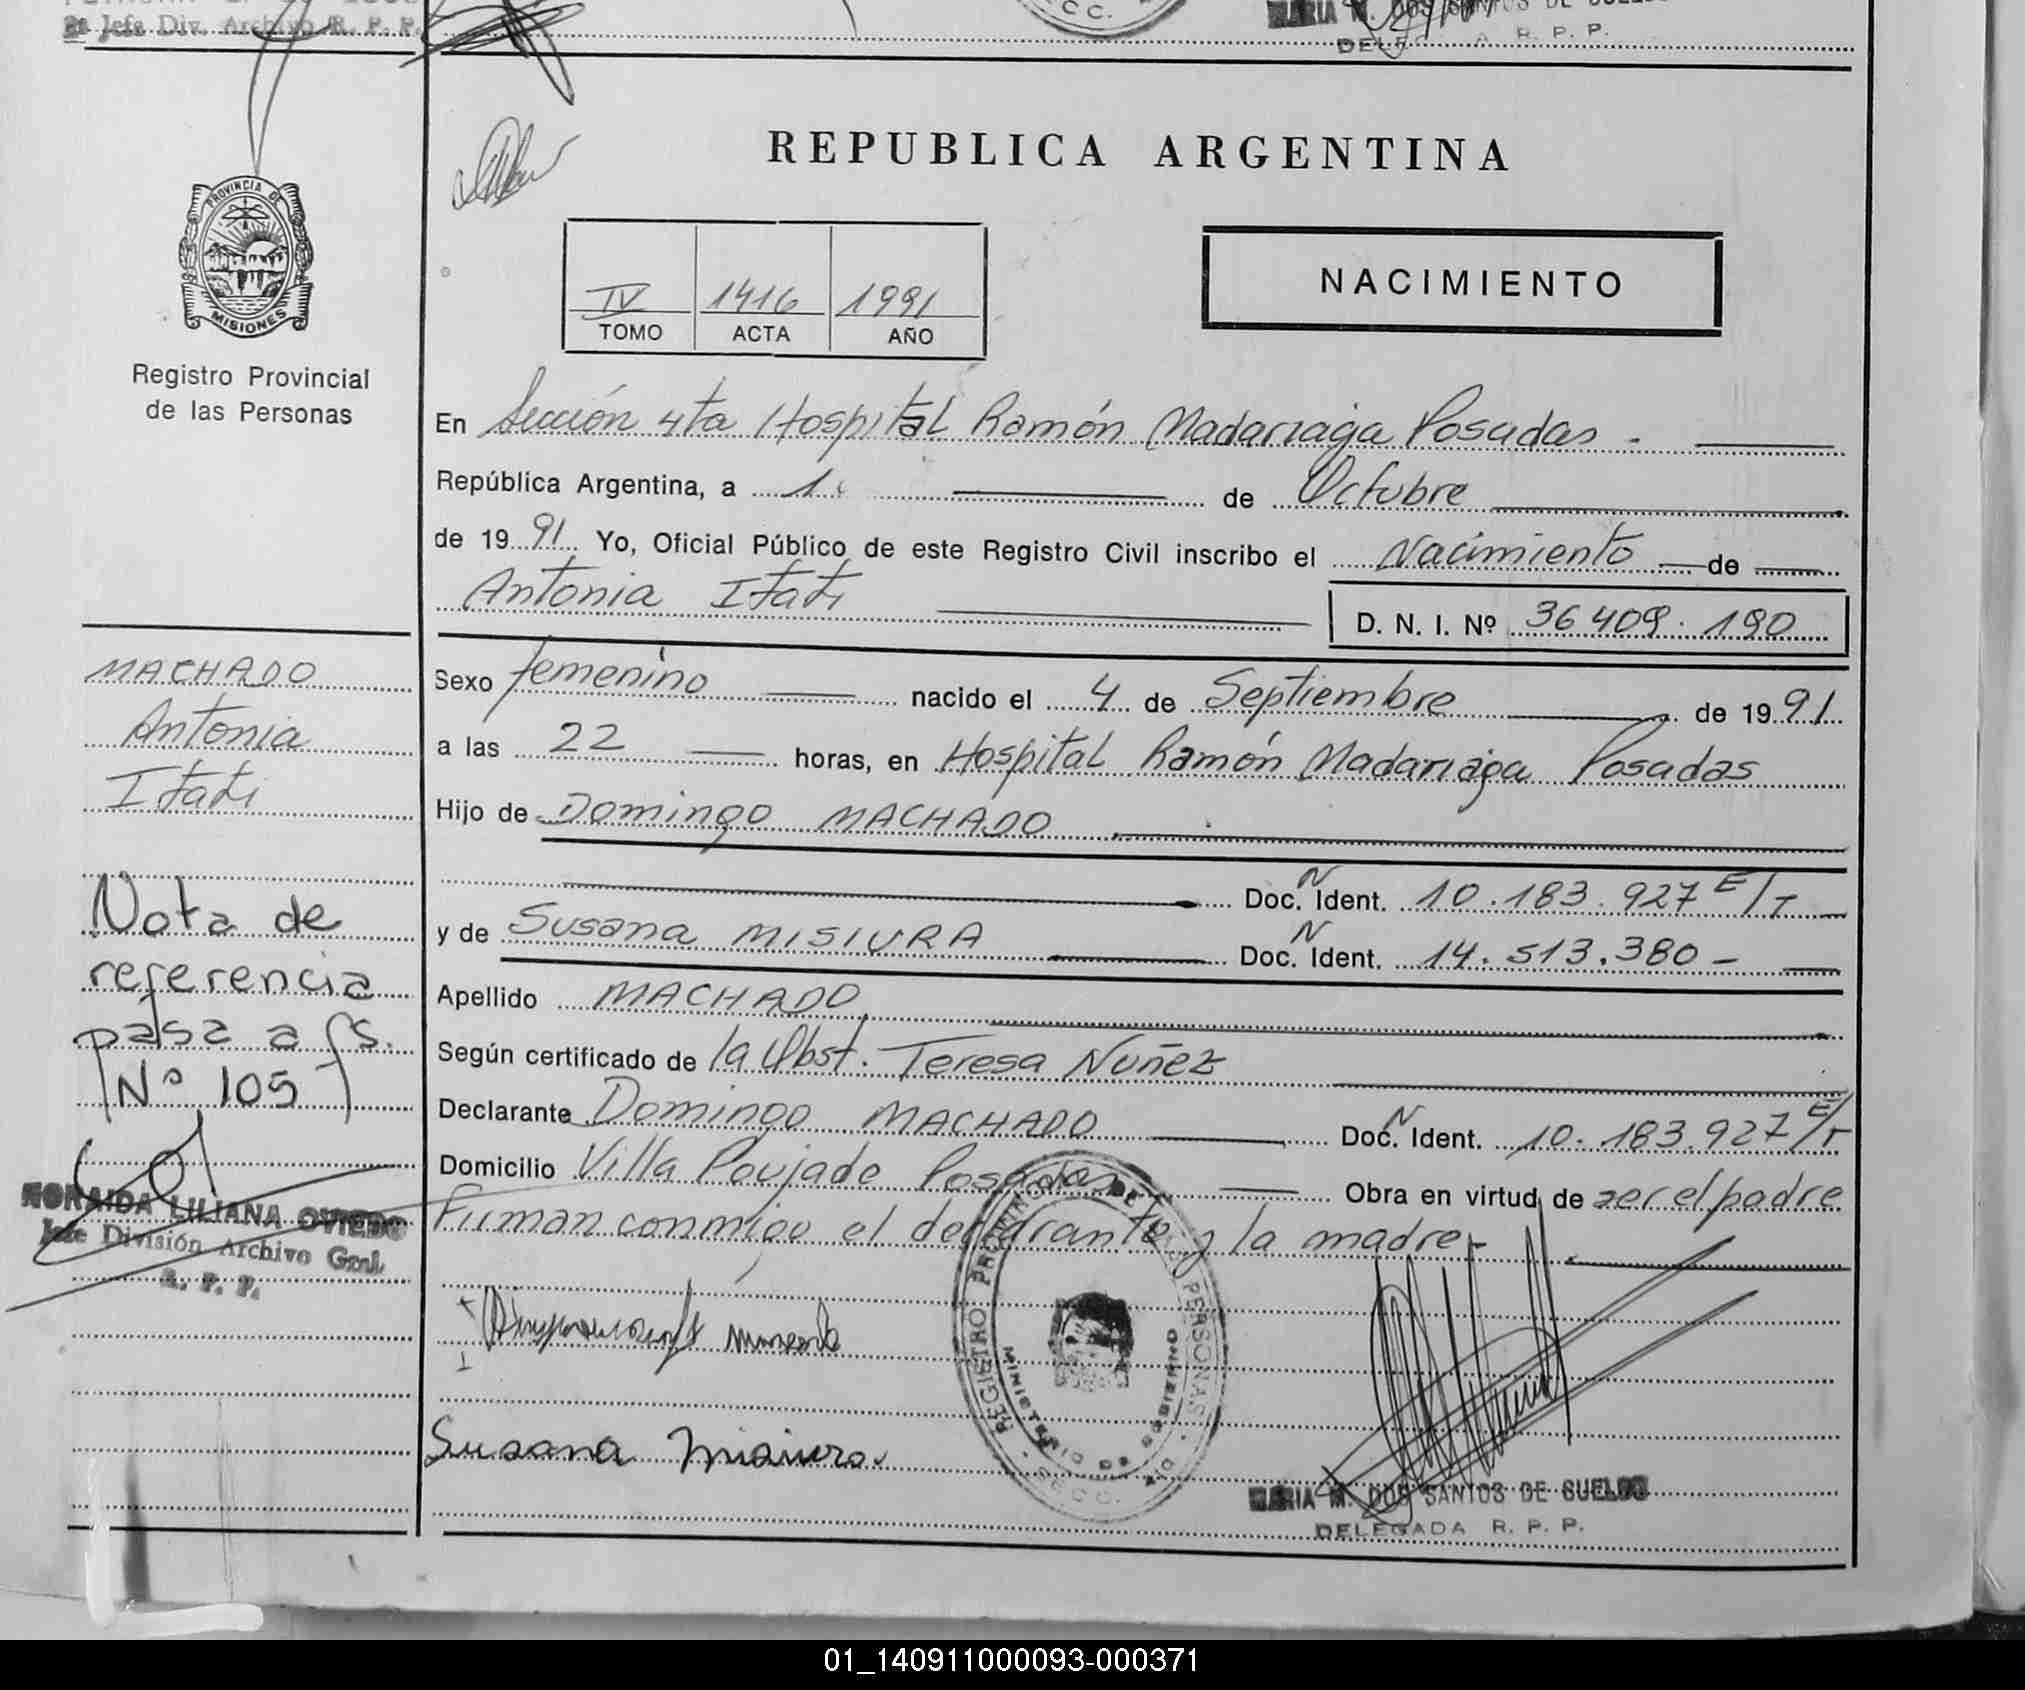 2a Jefa Div. Archivo R. P. P.
DELEGADA R. P. P.
REPUBLICA ARGENTINA
PROVINCIA DE
MISIONES
Registro Provincial
de las Personas
IV 1416 1991
TOMO ACTA AÑO
NACIMIENTO
En Sección 4ta Hospital Ramón Madariaga Posadas.
República Argentina, a 1 de Octubre
de 1991 Yo, Oficial Público de este Registro Civil inscribo el Nacimiento de
Antonia Itatí
D. N. I. Nº 36 409. 190
Sexo femenino nacido el 4 de Septiembre de 1991
a las 22 horas, en Hospital Ramón Madariaga Posadas
Hijo de Domingo MACHADO
Doc. N Ident. 10.183.927 E/T
y de Susana MISIURA Doc. N Ident. 14.513.380
Apellido MACHADO
Según certificado de la Obst. Teresa Nuñez
Declarante Domingo MACHADO Doc. N Ident. 10.183.927 E/T
Domicilio Villa Poujade Posadas Obra en virtud de ser el padre
Firman conmigo el declarante y la madre
MACHADO
Antonia
Itatí
Nota de
referencia
pasa a fs.
Nº 105
NORAIDA LILIANA OVIEDO
Jefe División Archivo Gral.
R. P. P.
REGISTRO PROVINCIAL DE LAS PERSONAS
MINISTERIO DE GOBIERNO
Susana Misiura
MARIA M. DOS SANTOS DE SUELOS
DELEGADA R. P. P.
01_140911000093-000371